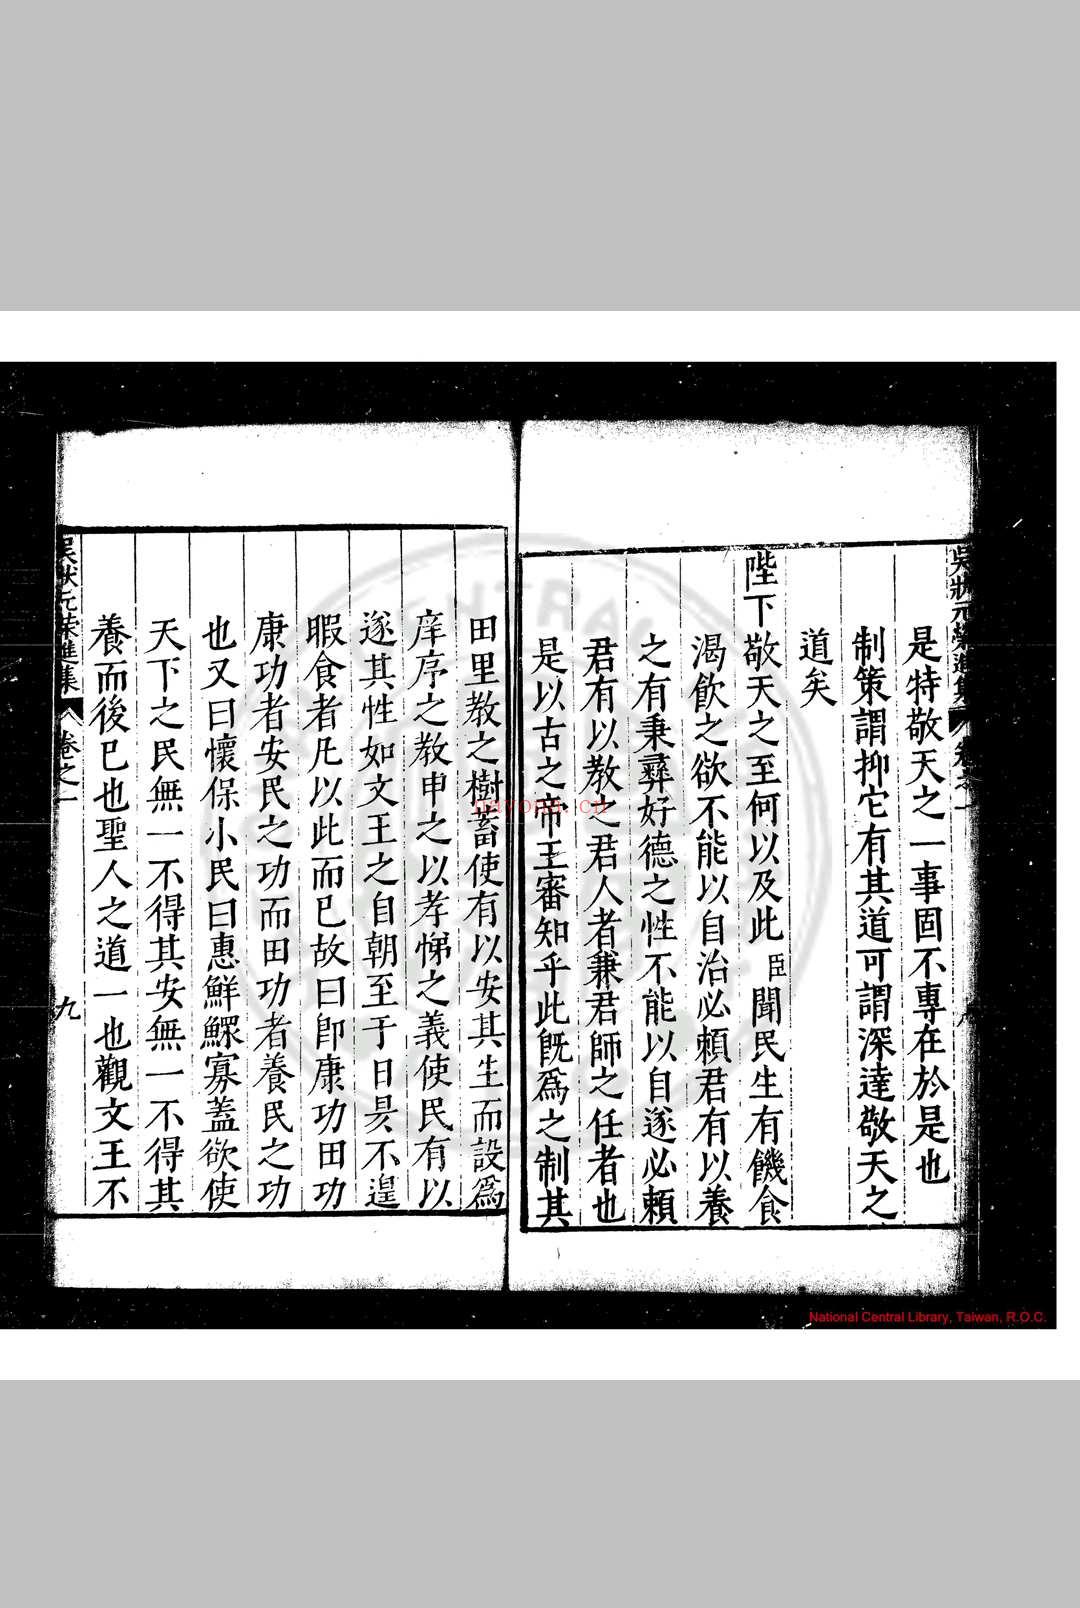 吳狀元榮進集
卷之一
是特敬天之一事固不專在於是也
制策謂抑它有其道可謂深達敬天之
道矣
陛下敬天之至何以及此臣聞民生有饑食
渴飲之欲不能以自治必賴君有以養
之有秉彝好德之性不能以自遂必賴
君有以教之君人者兼君師之任者也
是以古之帝王審知乎此既爲之制其
田里教之樹畜使有以安其生而設爲
庠序之教申之以孝悌之義使民有以
遂其性如文王之自朝至于日昃不遑
暇食者凡以此而已故曰卽康功田功
康功者安民之功而田功者養民之功
也又曰懷保小民曰惠鮮鰥寡蓋欲使
天下之民無一不得其安無一不得其
養而後已也聖人之道一也觀文王不
吳狀元榮進集
卷之一
九
nayona.cn
National Central Library, Taiwan, R.O.C.